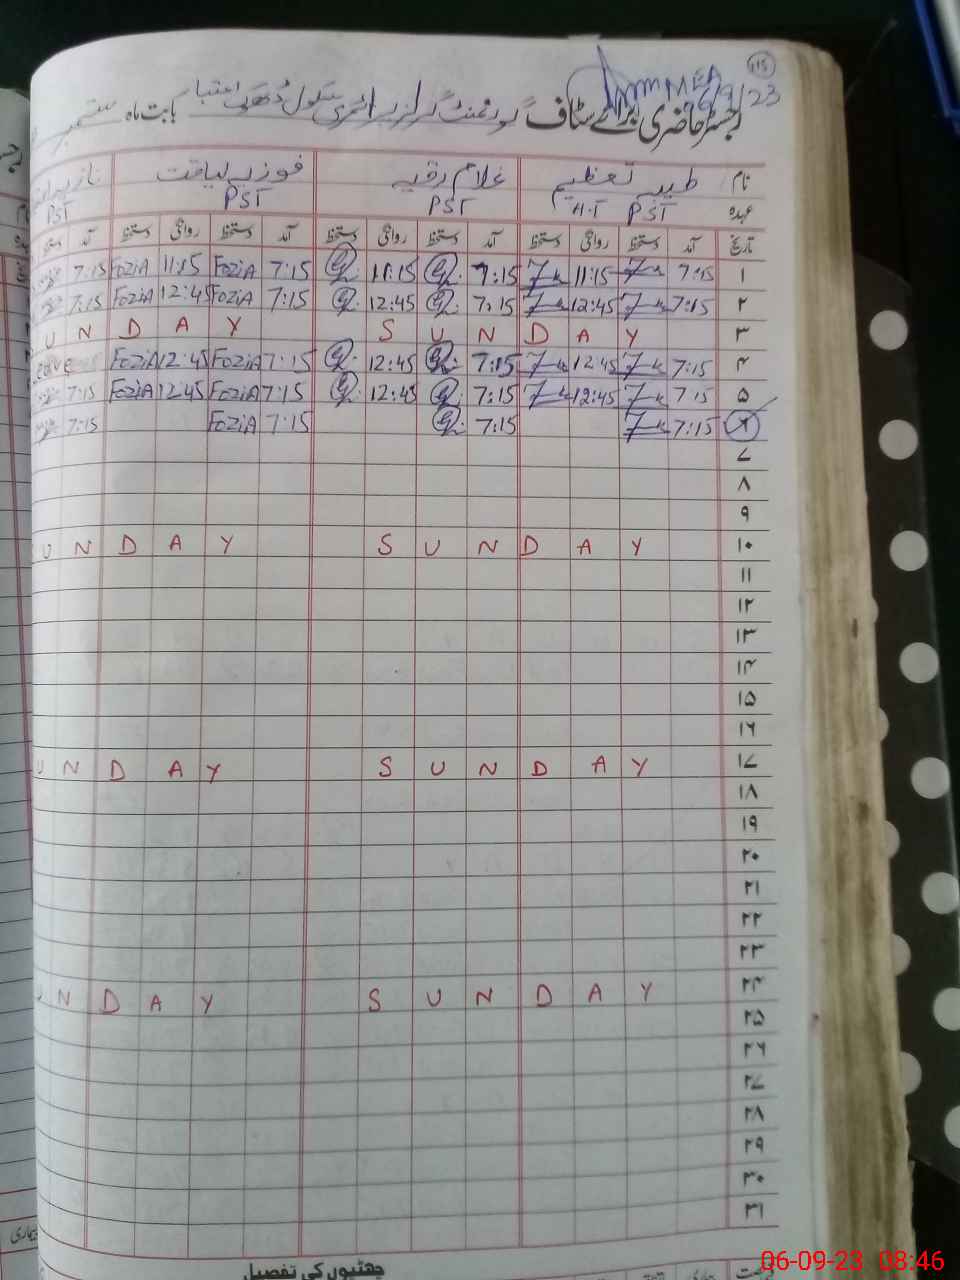 115
MEA
6/9/23
رجسٹر حاضری برائے سٹاف گورنمنٹ گرلز پرائمری سکول بابت ماہ ستمبر
نام طیبہ تعظیم غلام رقیہ فوزیہ لیاقت نازیہ
عہدہ PST H.T PST PST PST
تاریخ آمد دستخط روانگی دستخط آمد دستخط روانگی دستخط آمد دستخط روانگی دستخط آمد دستخط
۱ 7:15 11:15 7:15 11:15 7:15 FoziA 11:15 FoziA 7:15
۲ 7:15 12:45 7:15 12:45 7:15 FoziA 12:45 FoziA 7:15
۳ S U N D A Y U N D A Y
۴ 7:15 12:45 7:15 12:45 7:15 FoziA 12:45 FoziA Leave
۵ 7:15 12:45 7:15 12:45 7:15 FoziA 12:45 FoziA 7:15
۶ 7:15 7:15 7:15 FoziA 7:15
۷
۸
۹
۱۰ S U N D A Y U N D A Y
۱۱
۱۲
۱۳
۱۴
۱۵
۱۶
۱۷ S U N D A Y U N D A Y
۱۸
۱۹
۲۰
۲۱
۲۲
۲۳
۲۴ S U N D A Y U N D A Y
۲۵
۲۶
۲۷
۲۸
۲۹
۳۰
۳۱
چھٹیوں کی تفصیل
بیماری
06-09-23 08:46